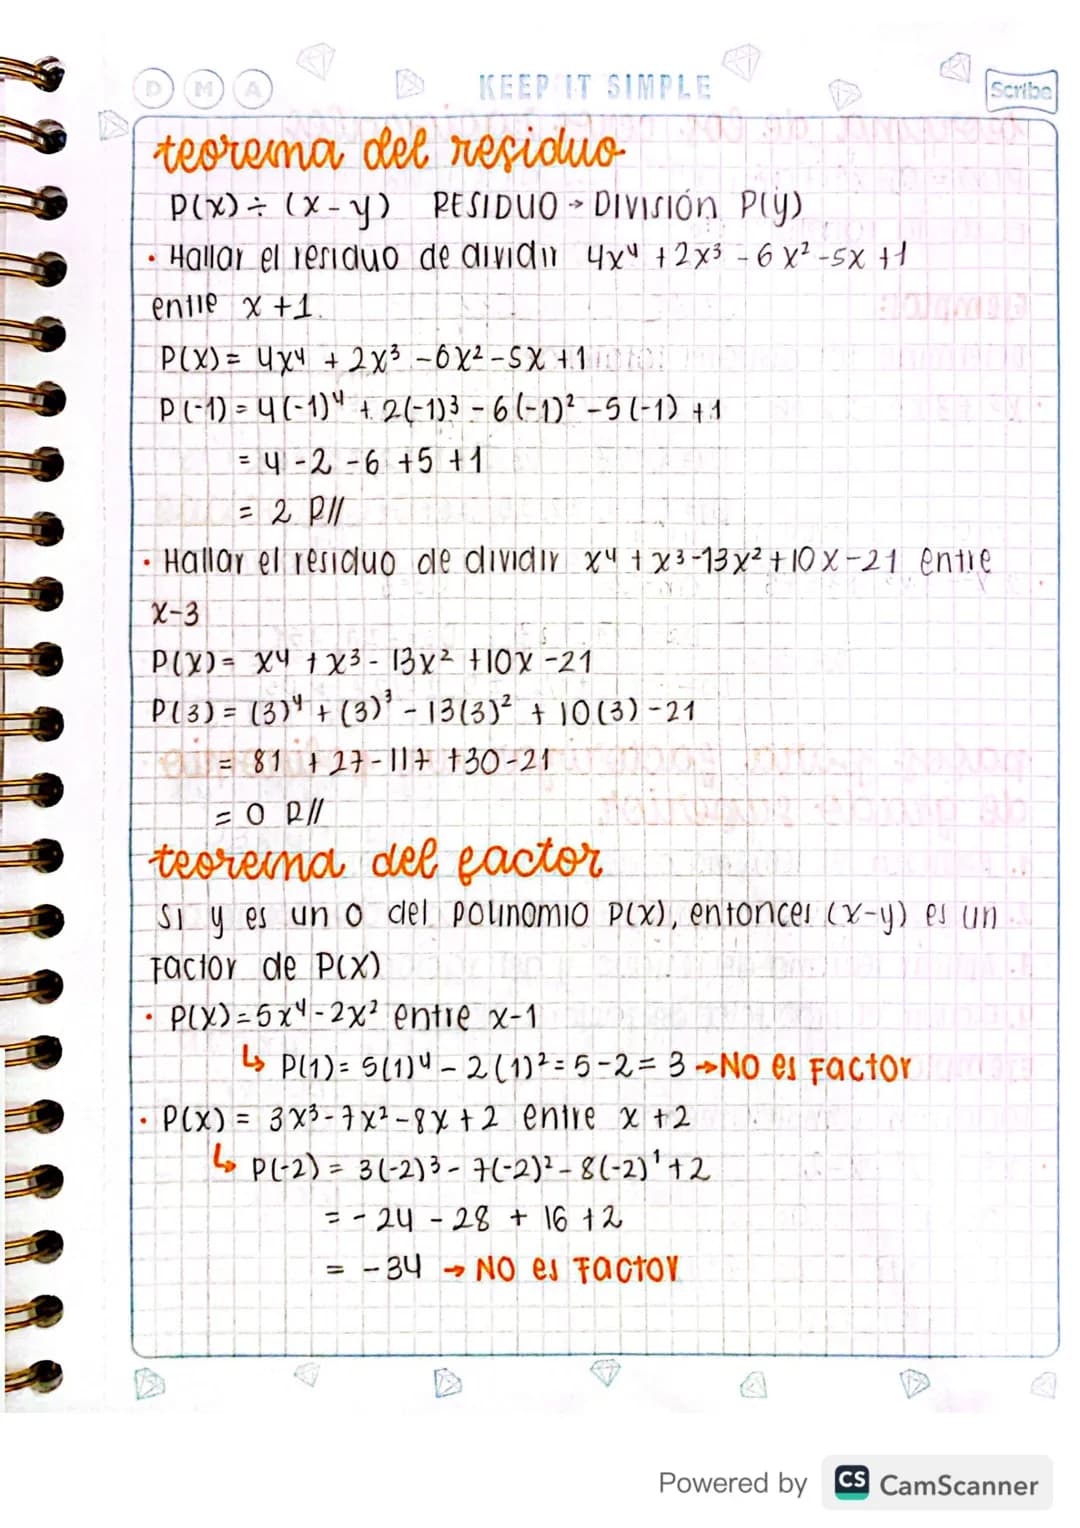 D M A KEEP IT SIMPLE Scribe
teorema del residuo
P(x) ÷ (x - y) RESIDUO → DIVISIÓN P(y)
· Hallar el residuo de dividir 4x⁴ + 2x³ - 6x² - 5x + 1
entre x + 1.
P(x) = 4x⁴ + 2x³ - 6x² - 5x + 1
P(-1) = 4(-1)⁴ + 2(-1)³ - 6(-1)² - 5(-1) + 1
= 4 - 2 - 6 + 5 + 1
= 2 R//
· Hallar el residuo de dividir x⁴ + x³ - 13x² + 10x - 21 entre
x - 3
P(x) = x⁴ + x³ - 13x² + 10x - 21
P(3) = (3)⁴ + (3)³ - 13(3)² + 10(3) - 21
= 81 + 27 - 117 + 30 - 21
= 0 R//
teorema del factor
Si y es un 0 del polinomio P(x), entonces (x-y) es un
Factor de P(x)
· P(x) = 5x⁴ - 2x² entre x - 1
↳ P(1) = 5(1)⁴ - 2(1)² = 5 - 2 = 3 → NO es Factor
· P(x) = 3x³ - 7x² - 8x + 2 entre x + 2
↳ P(-2) = 3(-2)³ - 7(-2)² - 8(-2)¹ + 2
= - 24 - 28 + 16 + 2
= - 34 → NO es Factor
Powered by CS CamScanner